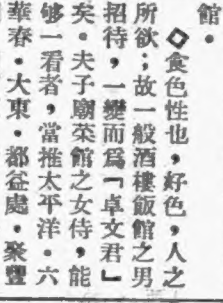 館。
◇食色性也，好色，人之
所欲；故一般酒樓飯館之男
招待，一變而爲「卓文君」
矣。夫子廟菜館之女侍，能
够一看者，當推太平洋・六
華春・大東・都益處・聚豐